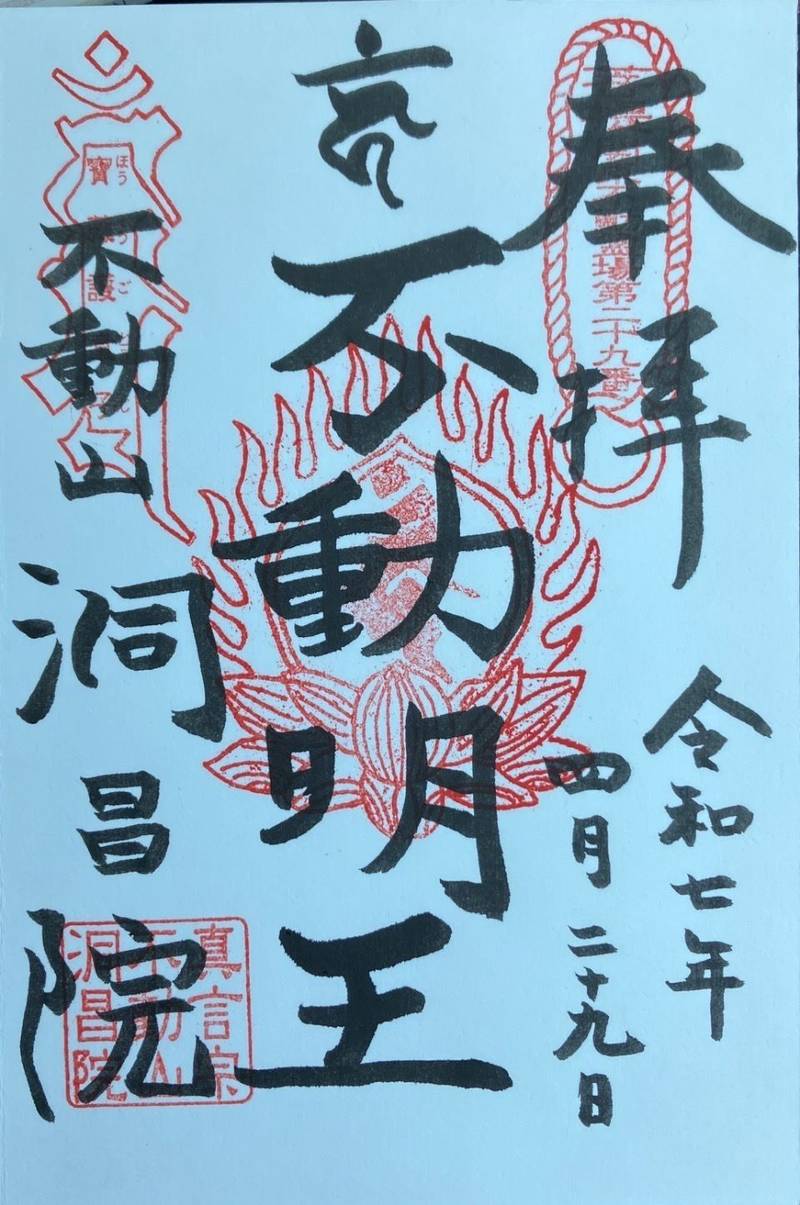 奉拝
令和七年
四月二十九日
霊場第二十九番
不動明王
不動山
洞昌院
ほう
寶
ご
護
真言宗
不動山
洞昌院